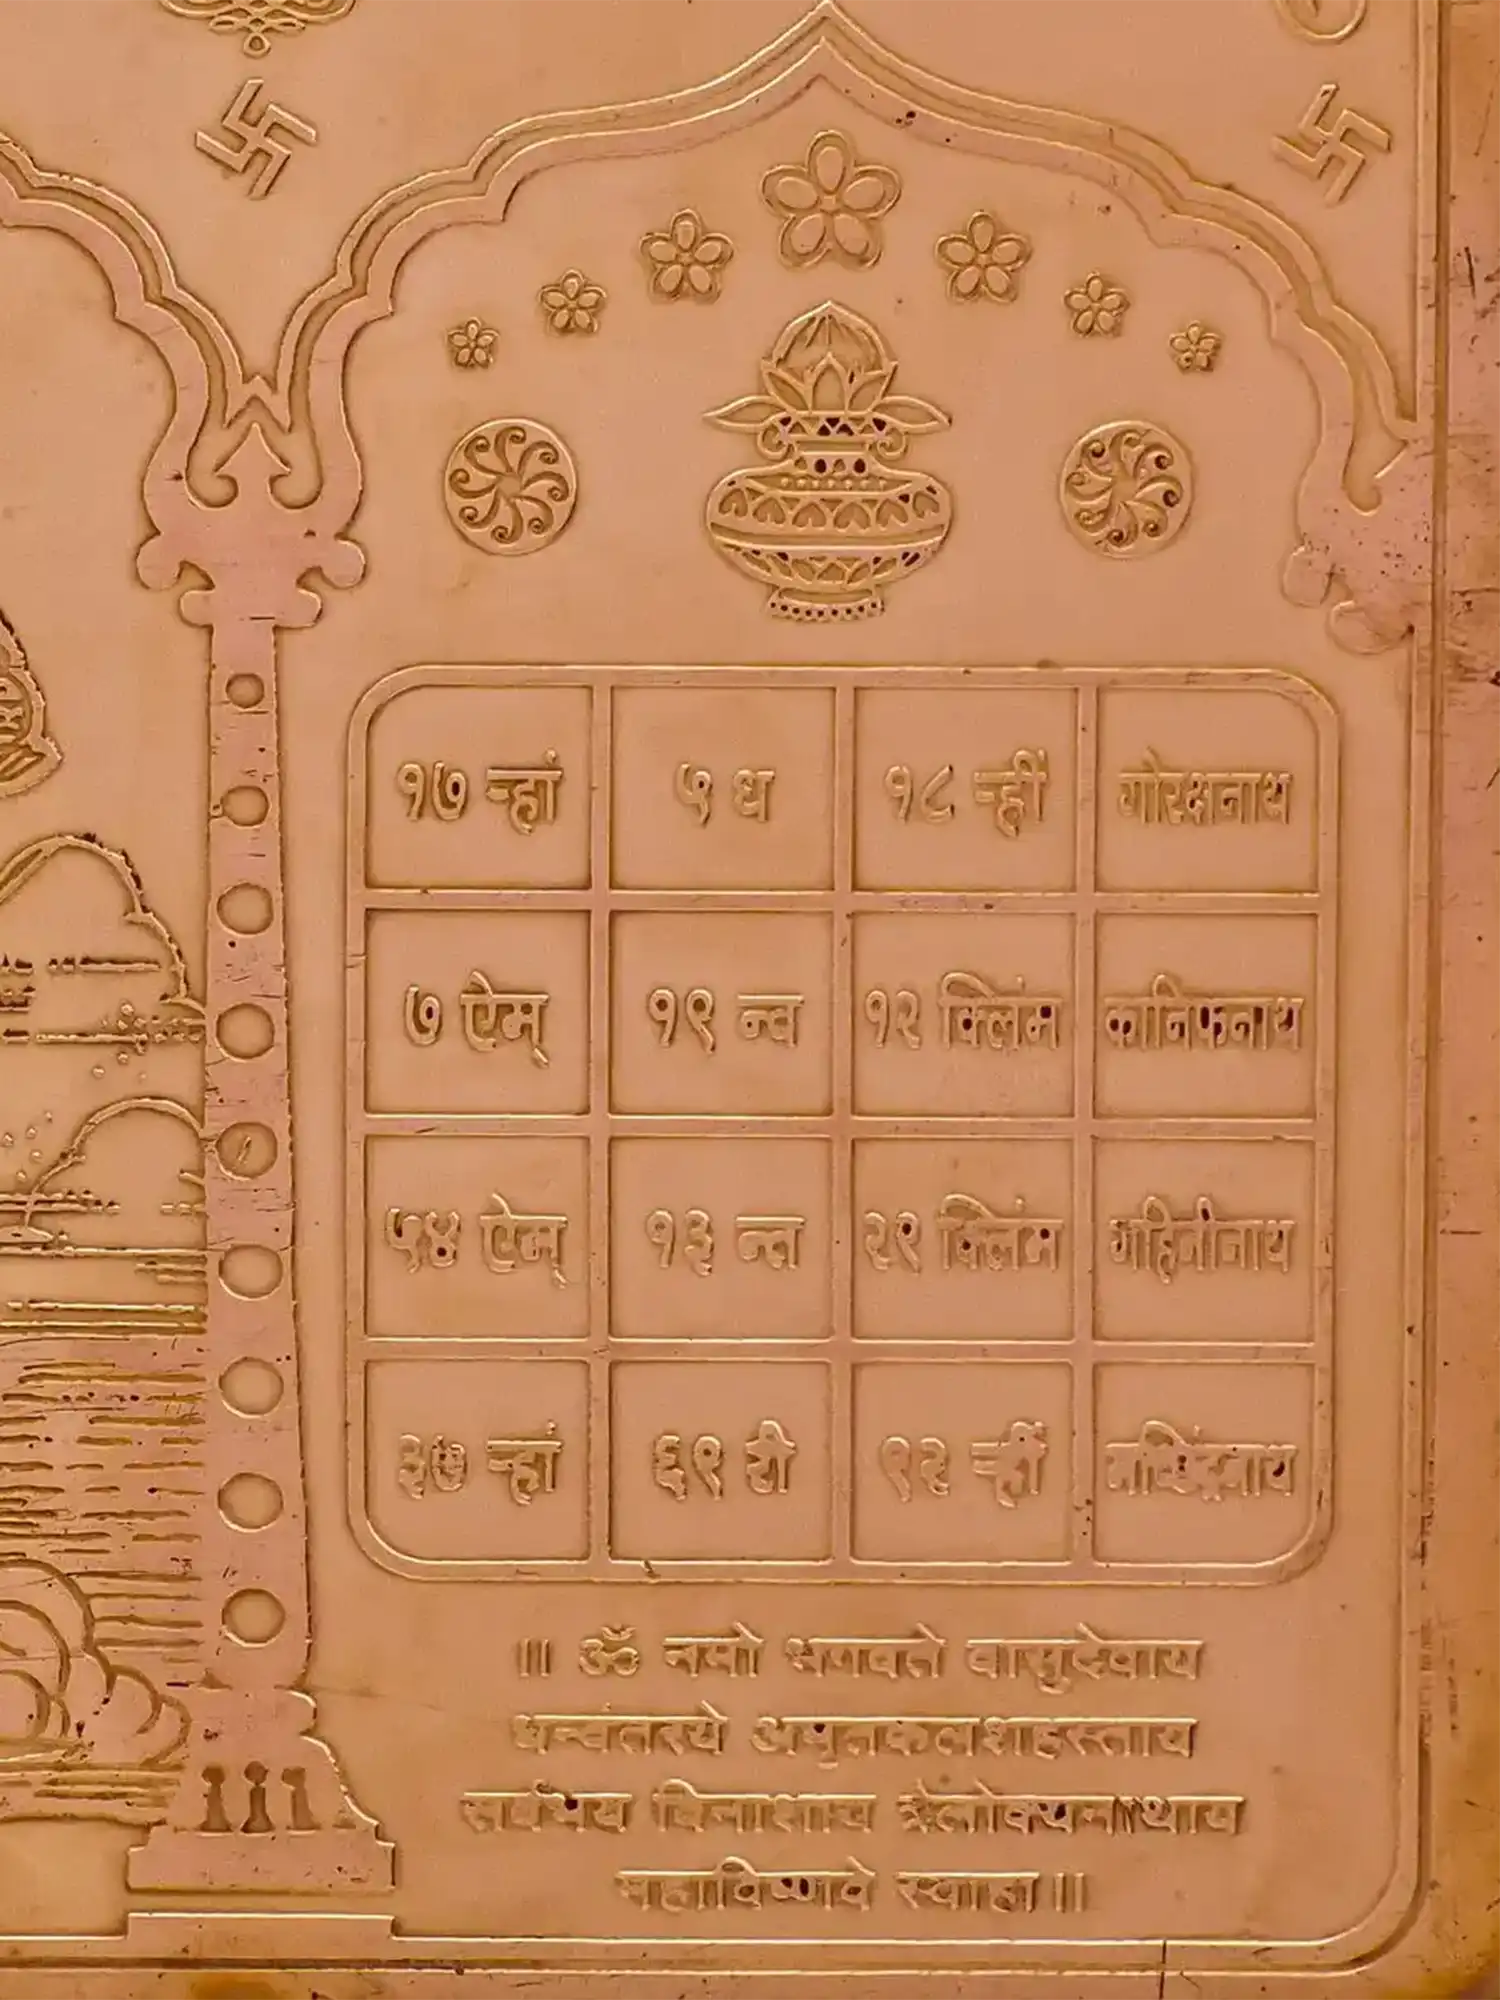 १७ ऱ्हां ५ ध १८ ऱ्हीं गोरक्षनाथ
७ ऐम् १९ न्व १२ क्लिंम कानिफनाथ
५४ ऐम् १३ न्त २९ क्लिंम गहिनीनाथ
३७ ऱ्हां ६९ री ९२ ऱ्हीं मच्छिंद्रनाथ
॥ ॐ नमो भगवते वासुदेवाय
धन्वंतरये अमृतकलशहस्ताय
सर्वभय विनाशाय त्रैलोक्यनाथाय
महाविष्णवे स्वाहा॥